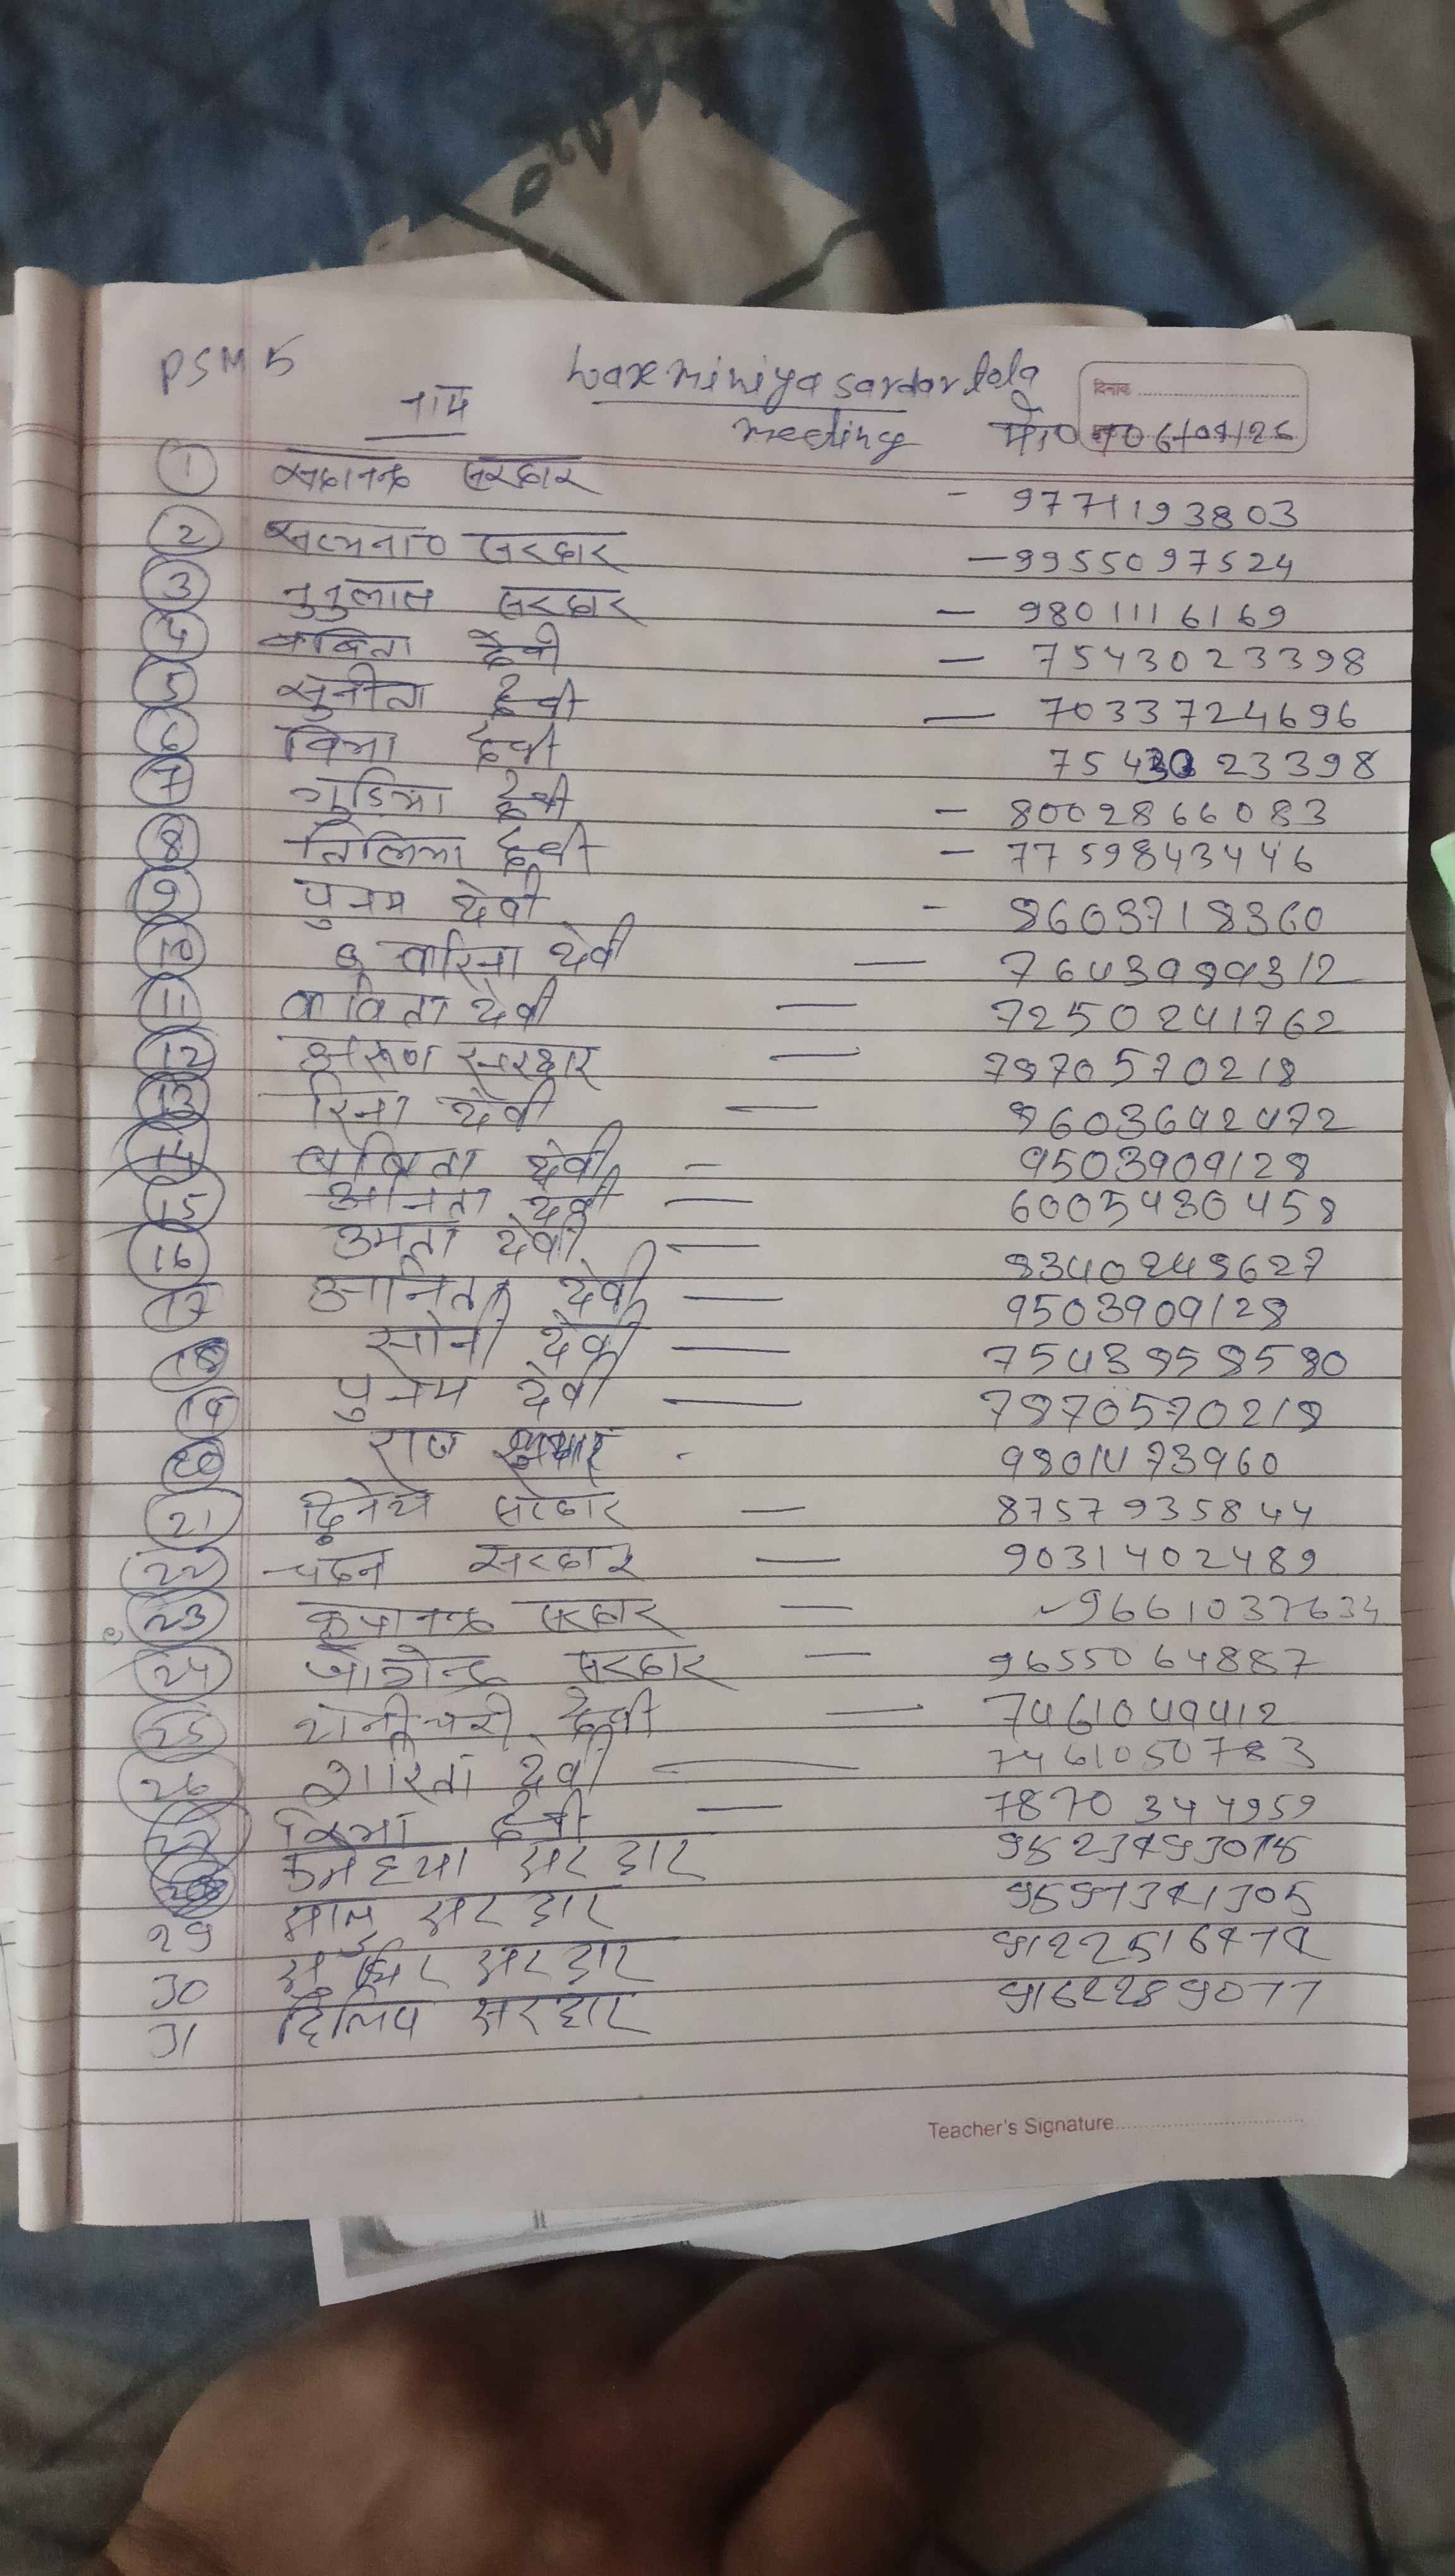 PSM 5 haxminiya sardar tola दिनांक
नाम meeting मो0 न0 06/07/26
1 सदानन्द सरदार - 9771193803
2 सत्यनाo सरदार - 9955097524
3 नुनुलाल सरदार - 9801116169
4 कबिता देवी - 7543023398
5 सुनीता देवी - 7033724696
6 विभा देवी 7543023398
7 गुडिया देवी - 8002866083
8 तिलिया देवी - 7759843446
9 पुनम देवी - 8603718360
10 देवी - 7643989312
11 कविता देवी - 7250241762
12 अरूण सरदार - 7870570218
13 रिना देवी - 9603642472
14 बबिता देवी - 9503909128
15 अनिता देवी - 6005430458
16 उमता देवी - 8340249627
17 अनिता देवी - 9503909128
18 सोनी देवी - 7543958580
19 पुनम देवी - 7870570218
20 राज कुमार - 9801473960
21 दिनेश सरदार - 8757935844
22 चदन सरदार - 9031402489
23 कृपानन्द सरदार - 9661037634
24 जोगेन्द्र सरदार - 9655064887
25 शनीचरी देवी - 7461049412
26 शारिता देवी - 7461050783
27 विभा देवी - 7870344959
28 कन्हैया सरदार
29 भानु सरदार
30 सुधिर सरदार
31 दिलिप सरदार 9162289077
Teacher's Signature